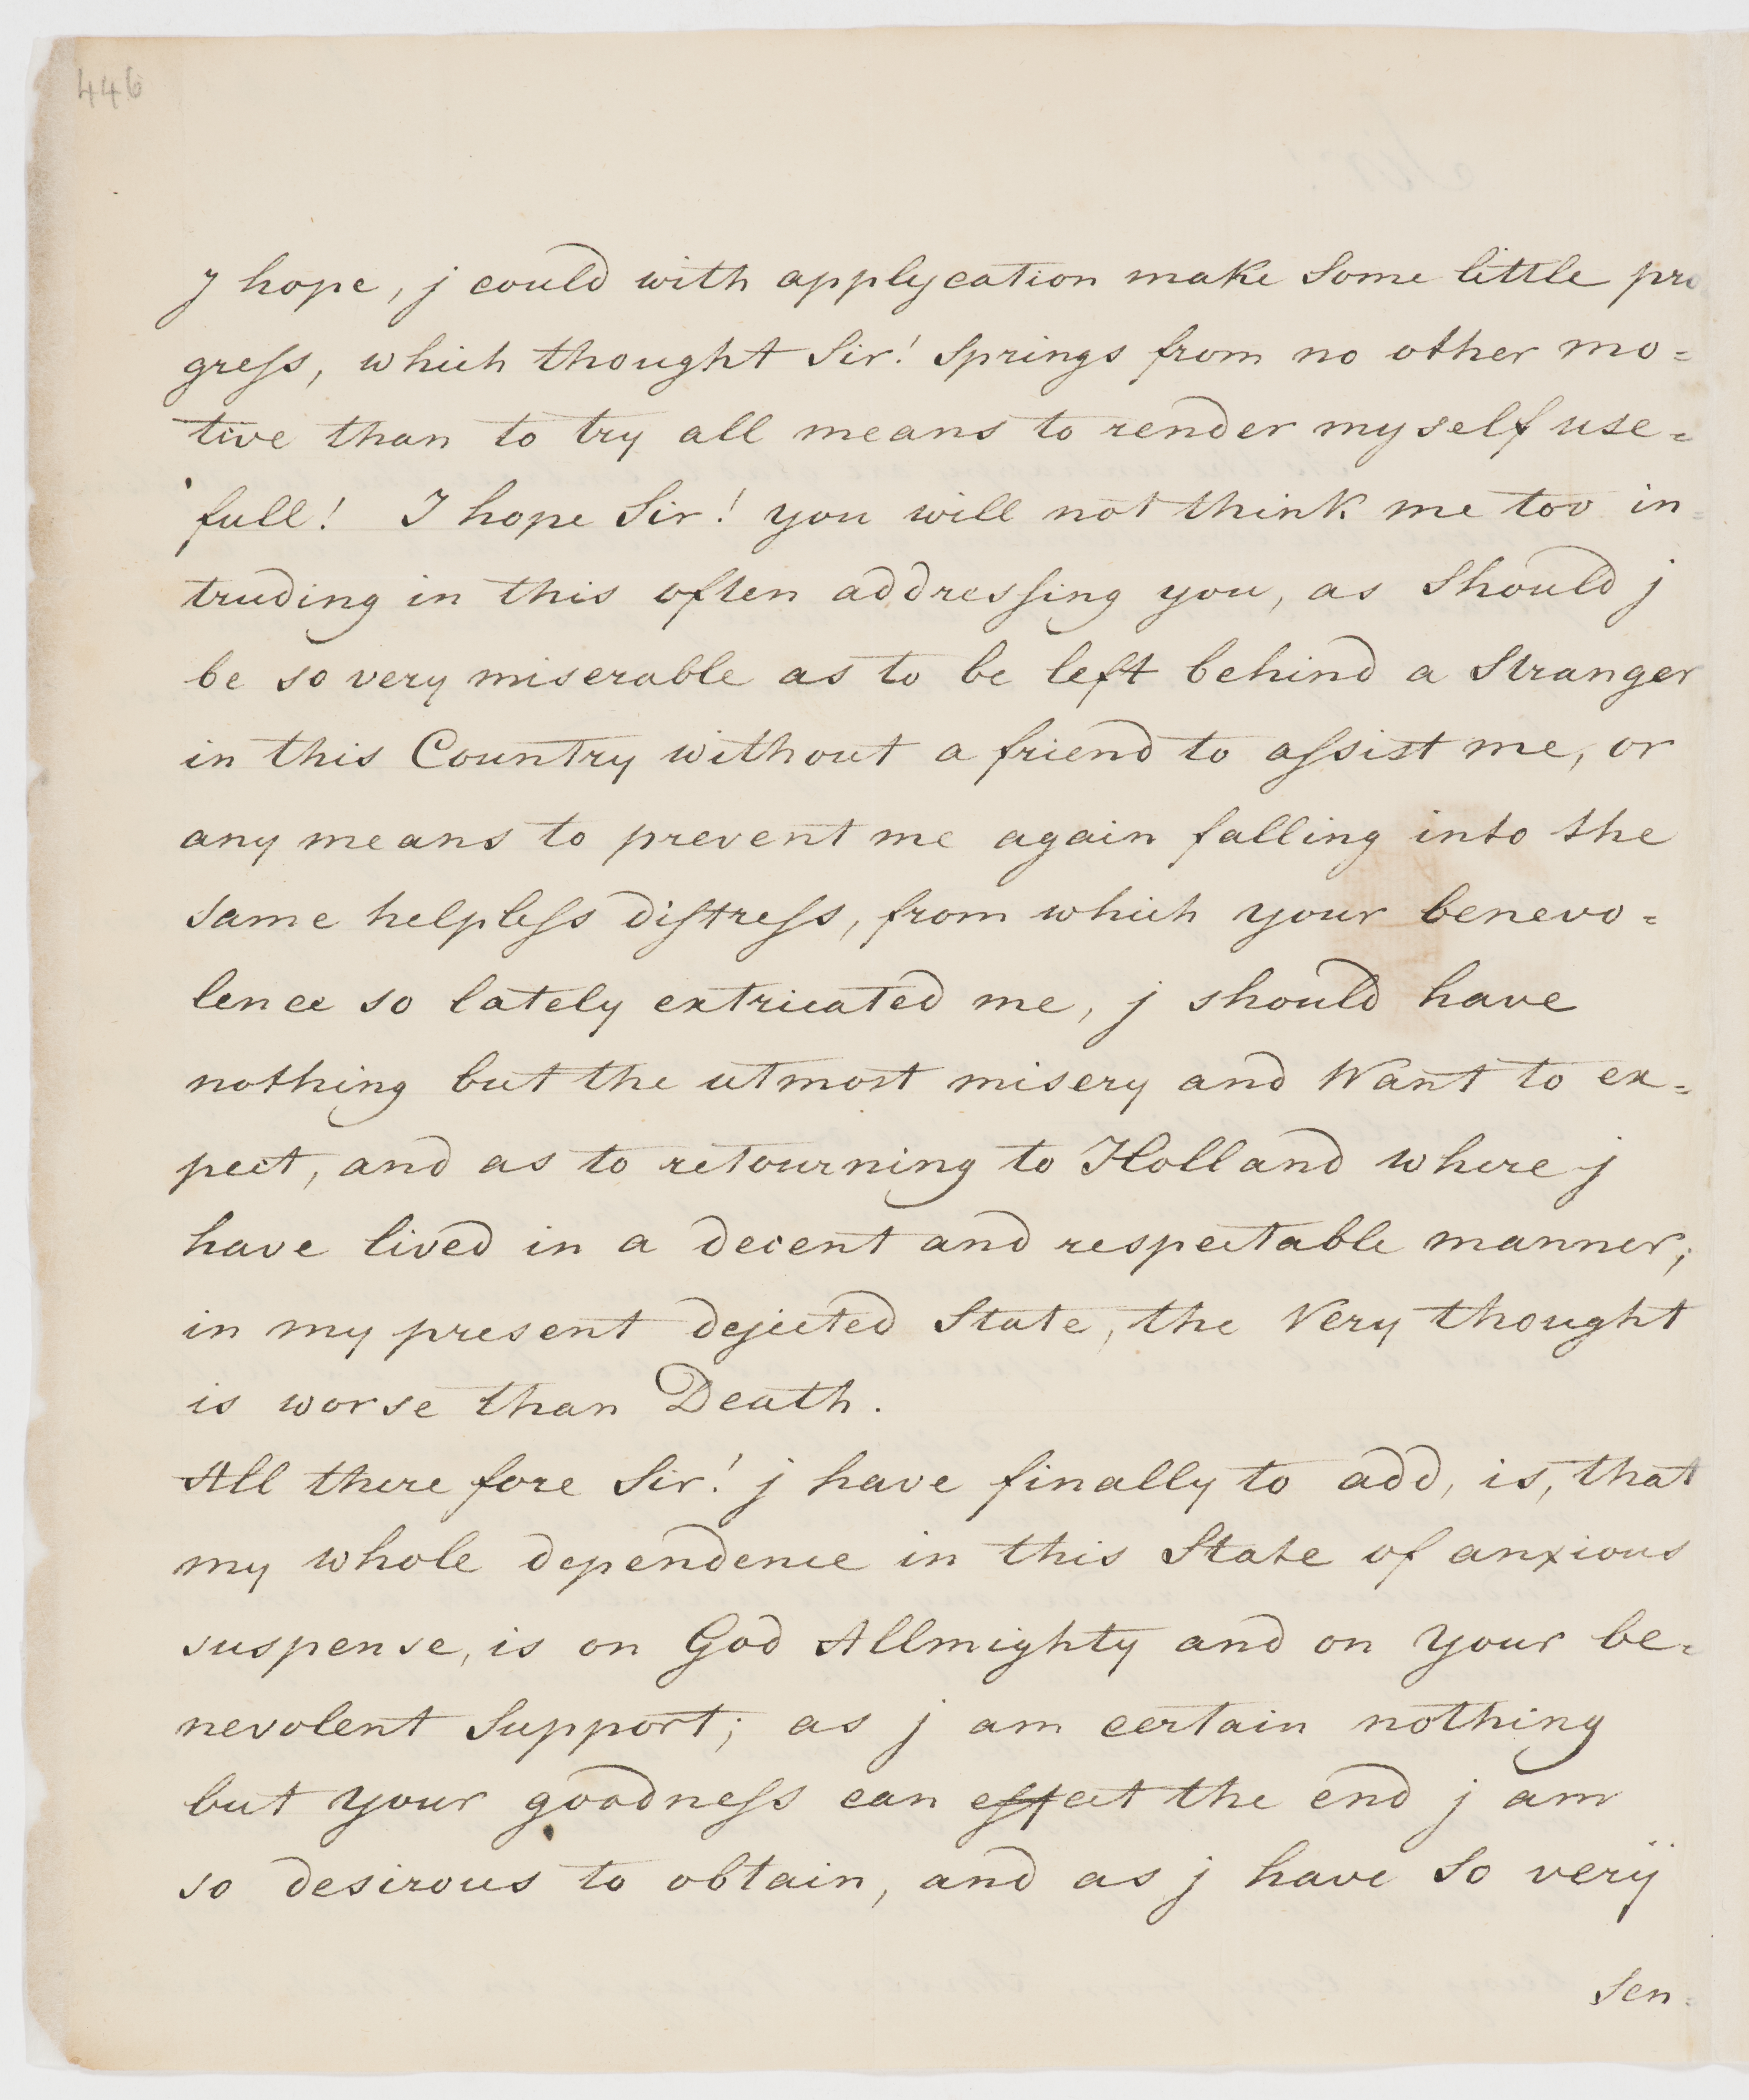 446
J hope, j could with applycation make Some little pro
greſs, which thought Sir! Springs from no other mo=
tive than to try all means to render my self use=
full! I hope Sir! you will not think me too in=
truding in this often addresſing you, as Should j
be so very miserable as to be left behind a Stranger
in this Country without a friend to aſsist me, or
any means to prevent me again falling into the
same helpleſs diſtreſs, from which your benevo=
lence so lately extricated me, j should have
nothing but the utmost misery and Want to ex=
pect, and as to retourning to Holland where j
have lived in a decent and respectable manner;
in my present dejected State, the Very thought
is worse than Death.
All there fore Sir! j have finally to add, is, that
my whole dependence in this State of anxious
suspense, is on God Allmighty and on your be=
nevolent Support; as j am certain nothing
but your goodneſs can effect the end j am
so desirous to obtain, and as j have So verÿ
Sen=